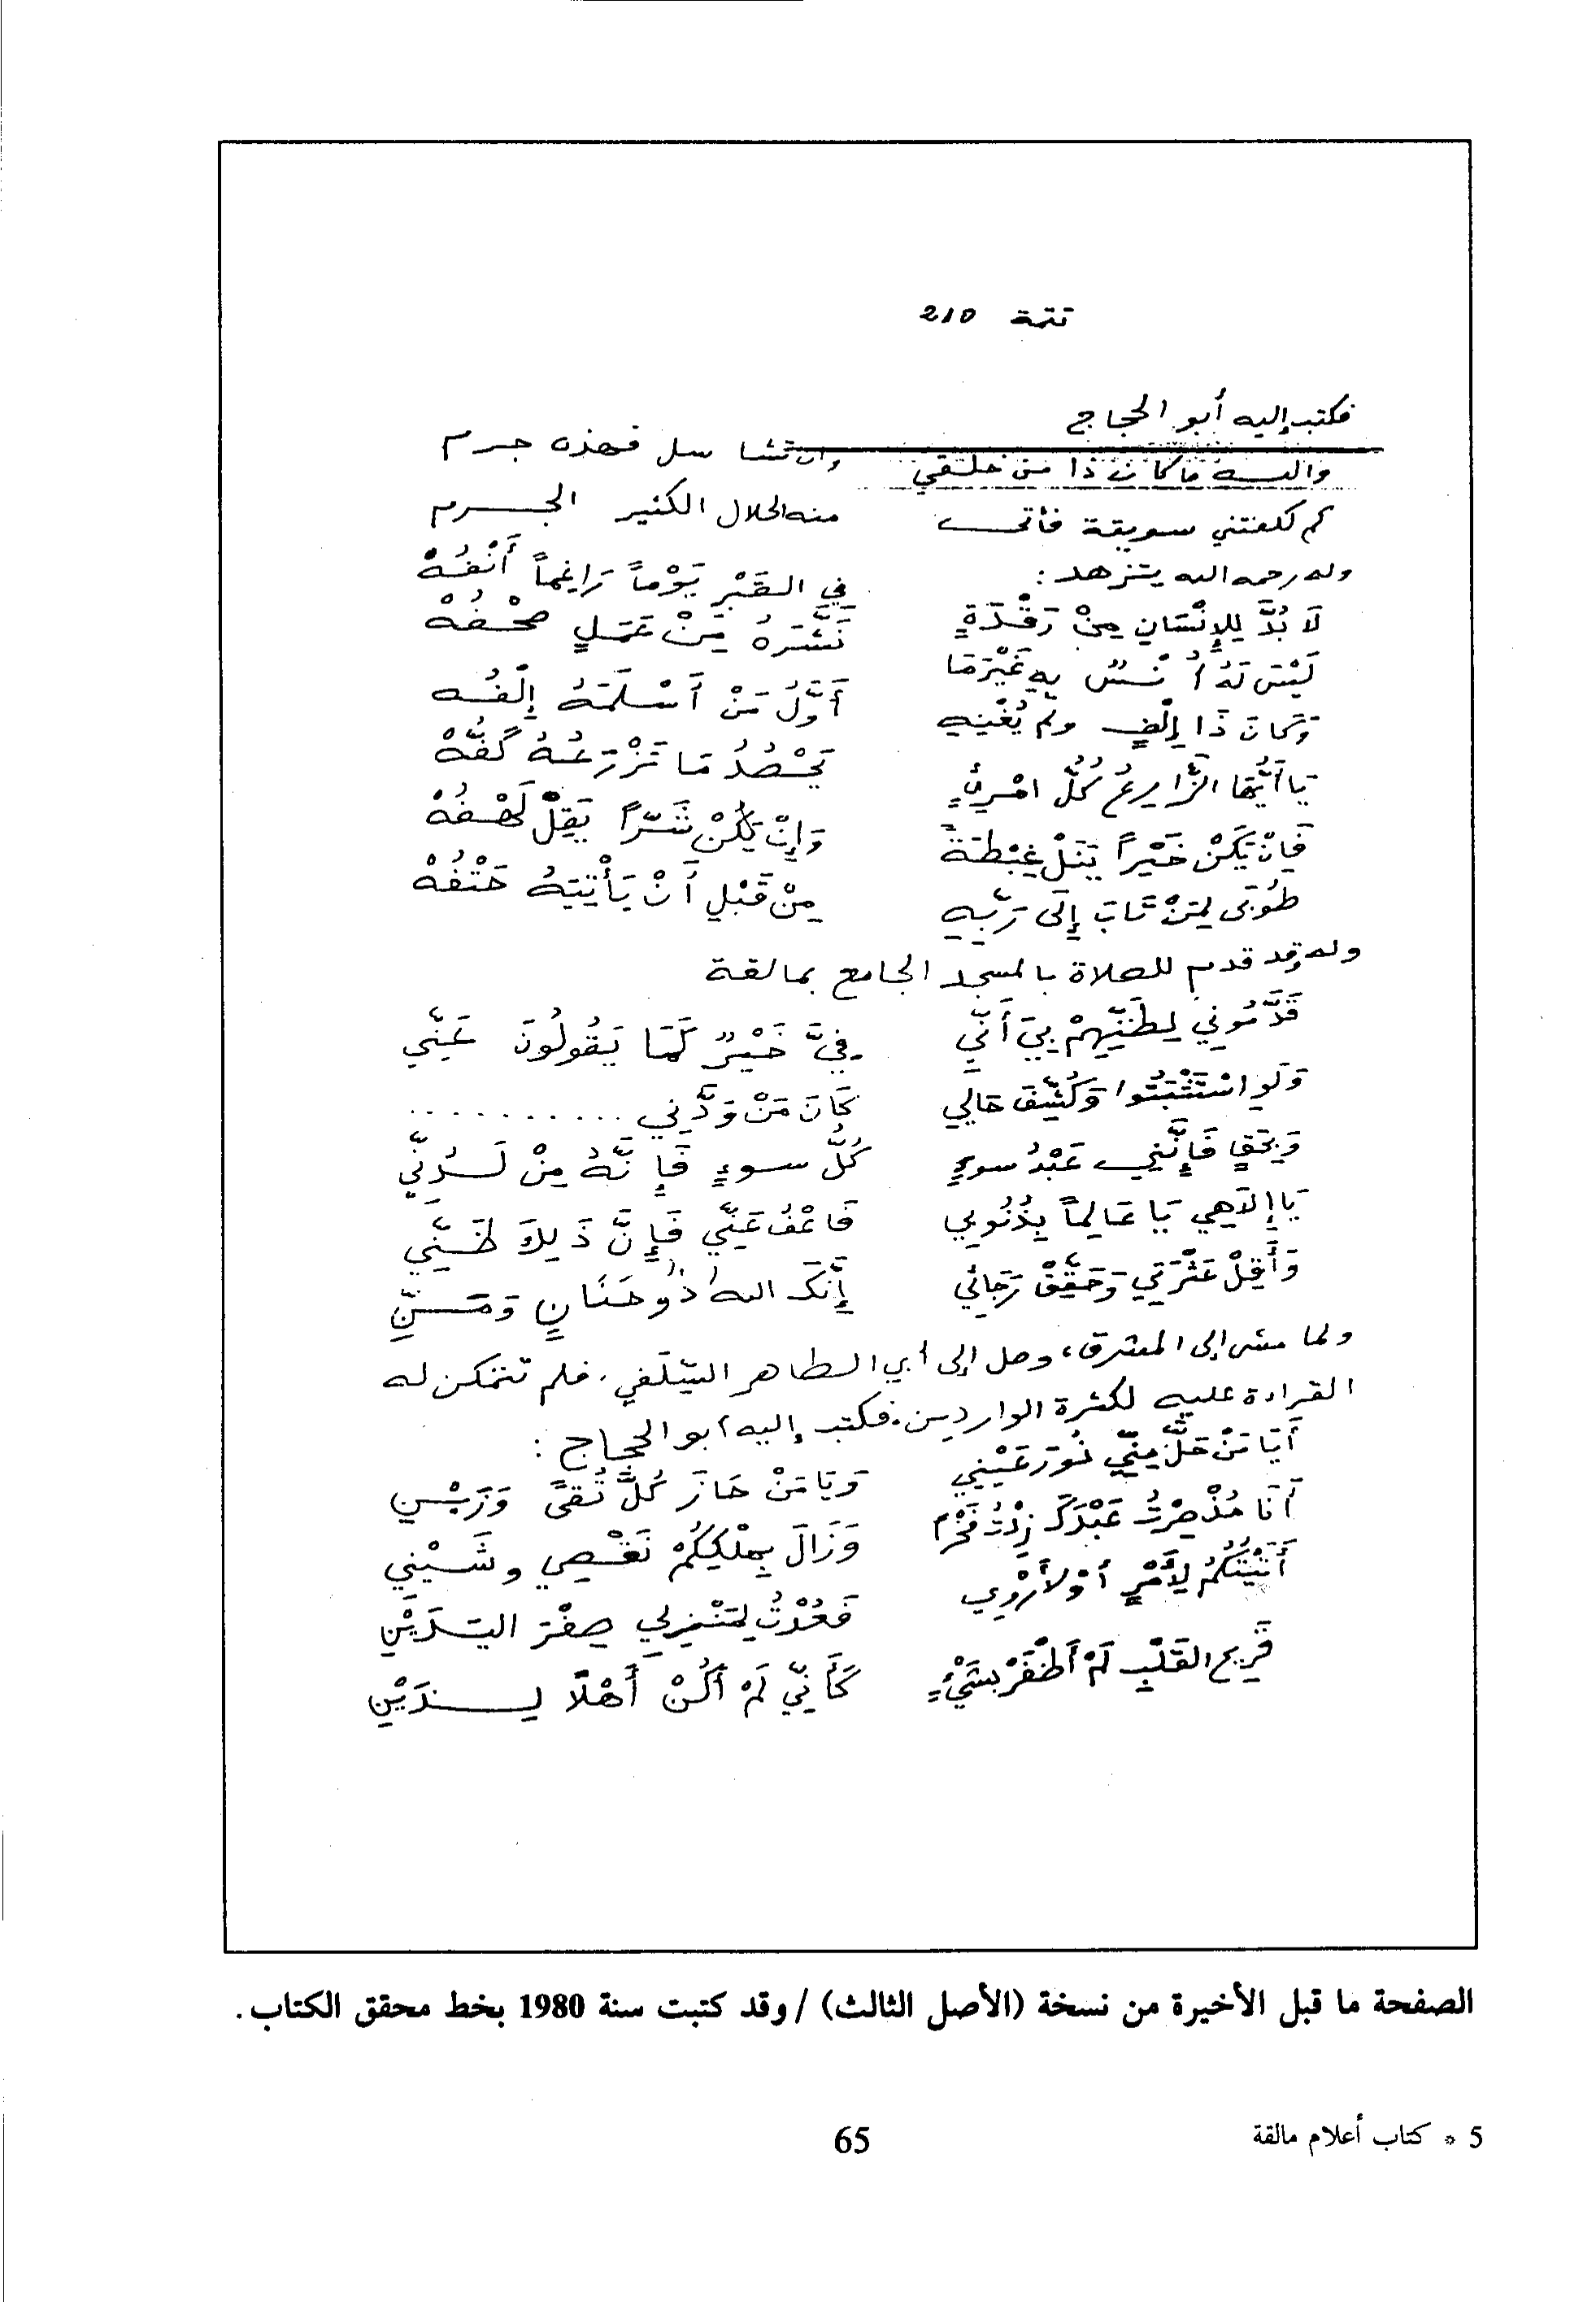 تتمة 210
فكتب إليه أبو الحجاج
والله ما كان ذا من خلقي وان تشا سل فهذه جرم
كم كلفتني سويقة فأتى منه الحلال الكثير الجرم
وله رحمه الله يتزهد:
لَا بُدَّ لِلإِنْسَانِ مِنْ رَقْدَةٍ فِي القَبْرِ يَوْماً رَاغِماً أَنْفُهْ
لَيْسَ لَهُ أُنْسٌ بِهِ غَيْرَمَا نَشَّرَهُ مِنْ عَمَلٍ صُحْفُهْ
وَكَانَ ذَا إِلْفٍ ولَمْ يُغْنِهِ أَوَّلُ مَنْ أَسْلَمَهُ إِلْفُه
يَا أَيُّهَا الزَّارِعُ كُلُّ امْرِئٍ يَحْصُدُ مَا تَزْرَعُهُ كَفُّهْ
فَإِنْ يَكُنْ خَيْراً يَنَلْ غِبْطَةً وَإِنْ يَكُنْ شَرّاً يَقِلْ لَهْفُهْ
طُوبَى لِمَنْ تَابَ إِلَى رَبِّهِ مِنْ قَبْلِ أَنْ يَأْتِيَهُ حَتْفُهْ
وله وقد قدم للصلاة بالمسجد الجامع بمالقة
قَدَّمُونِي لِظَنِّهِمْ بِيَ أَنِّي فِيَّ خَيْرٌ كَمَا يَقُولُونَ عَنِّي
وَلَوِ اسْتَثْبَتُوا وَكُشِّفَ حَالِي كَانَ مَنْ وَدَّنِي ...........
وَبِحَقٍ فَإِنَّنِي عَبْدُ سوءٍ كُلُّ سوءٍ فَإِنَّهُ مِنْ لَدُنِّي
يَا إِلَهِي يَا عَالِماً بِذُنُوبِي فَاعْفُ عَنِّي فَإِنَّ ذَلِكَ ظَنِّي
وَأَقِلْ عَثْرَتِي وَحَقِّقْ رَجَائِي إِنَّكَ اللهُ ذُو حَنَانٍ وَمَنِّ
ولما مشى إلى المشرق، وصل إلى أبي الطاهر السِّلَفي. فلم تتمكن له
القراءة عليه لكثرة الواردين. فكتب إليه أبو الحجاج:
أَيَا مَنْ حَلَّ مِنِّي نُورَ عَيْنِي وَيَا مَنْ حَازَ كُلَّ تُقىً وَزَيْنِ
أَنَا مُذْ صِرْتُ عَبْدَكَ زِدْتُ فَخْرا وَزَالَ بِمِلْكِكُمْ نَقْصِي وشَيْنِي
أَتَيْتُكُمُ لِأَمْرٍ أَوْ لأَرْوِي فَعُدْتُ لِمَنْزِلِي صِفْرَ اليَدَيْنِ
قَرِيحَ القَلْبِ لَمْ أَظْفَرْ بِشَيْءٍ كَأَنِّي لَمْ أَكُنْ أَهْلًا لِذَيْنِ
الصفحة ما قبل الأخيرة من نسخة (الأصل الثالث) / وقد كتبت سنة 1980 بخط محقق الكتاب.
5 * كتاب أعلام مالقة
65